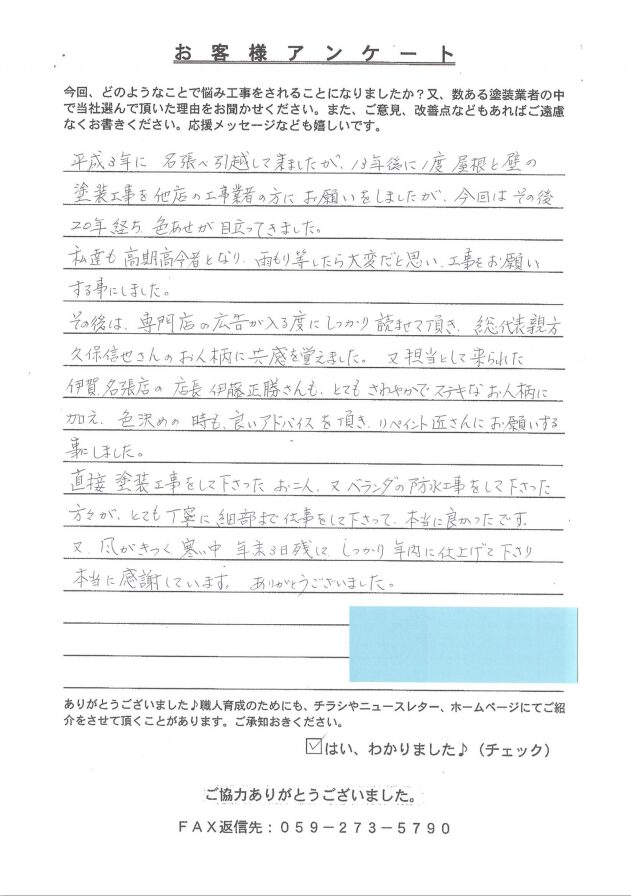 お客様アンケート
今回、どのようなことで悩み工事をされることになりましたか？又、数ある塗装業者の中
で当社選んで頂いた理由をお聞かせください。また、ご意見、改善点などもあればご遠慮
なくお書きください。応援メッセージなども嬉しいです。
平成3年に 名張へ引越して来ましたが、13年後に1度 屋根と壁の
塗装工事を他店の工事業者の方に お願いをしましたが、今回は その後
20年経ち 色あせが目立ってきました。
私達も高期高令者となり、雨もり等したら大変だと思い、工事をお願い
する事にしました。
その後は、専門店の広告が入る度にしっかり読ませて頂き、総代表親方
久保信也さんのお人柄に共感を覚えました。又担当として来られた
伊賀、名張店の店長 伊藤正勝さんも、とても さわやかでステキなお人柄に
加え、色決めの時も、良いアドバイスを頂き、リペイント匠さんにお願いする
事にしました。
直接 塗装工事をして下さった お二人、又 ベランダの防水工事をして下さった
方々が、とても丁寧に細部まで仕事をして下さって、本当に良かったです。
又、風がきつく、寒い中 年末3日残して しっかり年内に仕上げて下さり
本当に感謝しています。ありがとうございました。
ありがとうございました♪職人育成のためにも、チラシやニュースレター、ホームページにてご紹
介をさせて頂くことがあります。ご承知おきください。
☑はい、わかりました♪（チェック）
ご協力ありがとうございました。
ＦＡＸ返信先：０５９－２７３－５７９０